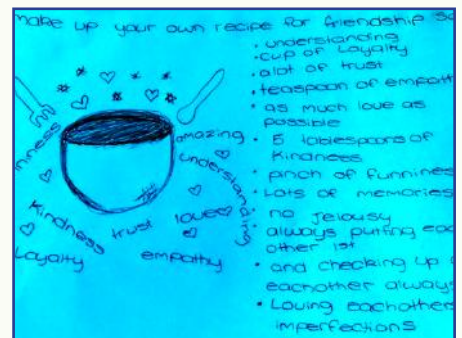 make up your own recipe for friendship so
• understanding
• cup of Loyalty
• alot of trust
• teaspoon of empath
• as much love as
possible
• 5 tablespoons of
Kindness
• pinch of funnines
• Lots of memories
no Jelousy
• always putting eac
other 1st
• and checking up o
eachother always
• Loving eachothers
imperfections
inness
amazing
understanding
Kindness
trust
love
Loyalty
empathy